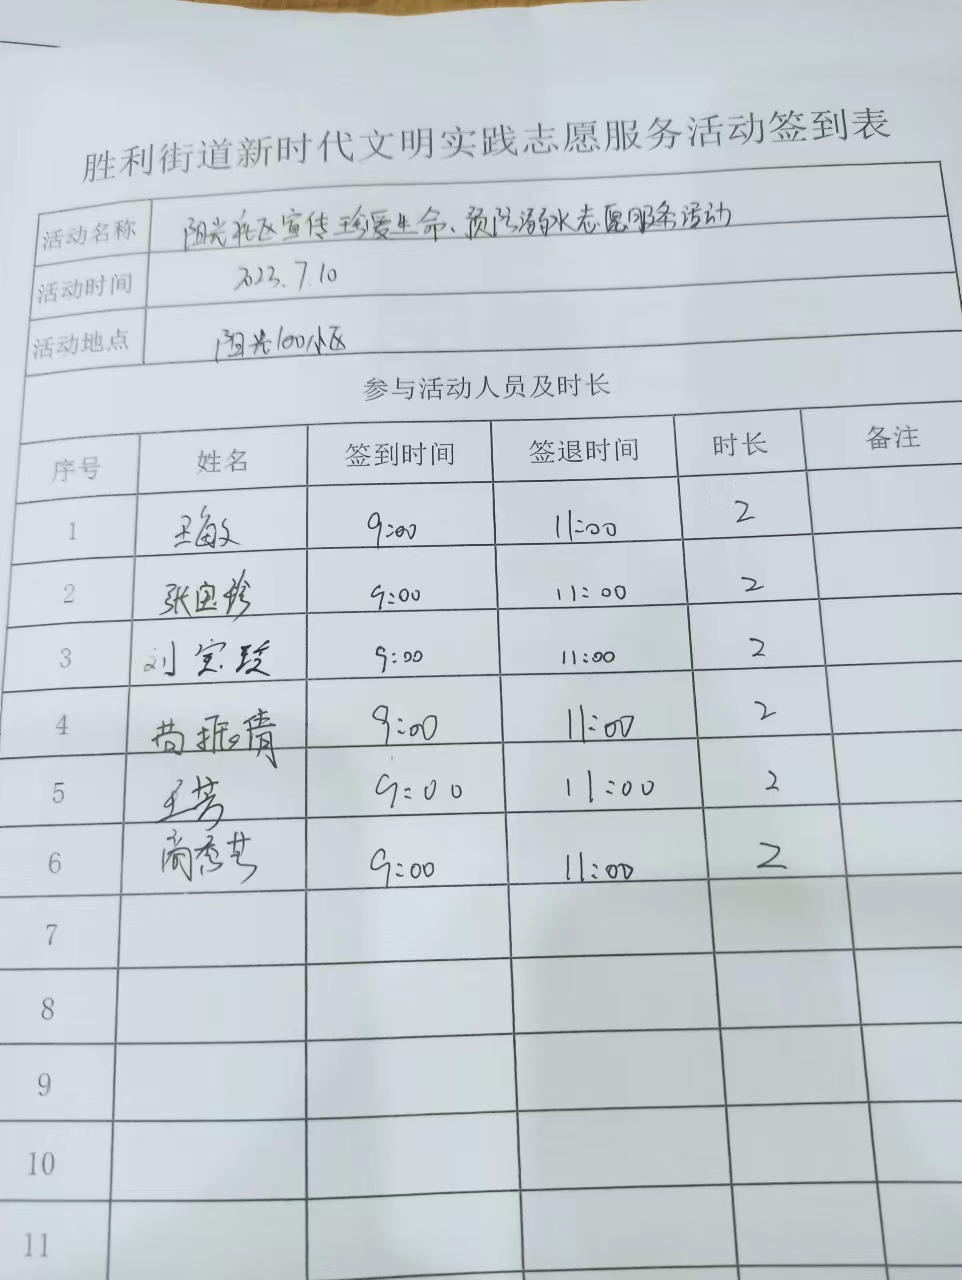 胜利街道新时代文明实践志愿服务活动签到表
活动名称 阳光社区宣传珍爱生命、预防溺水志愿服务活动
活动时间 2023.7.10
活动地点 阳光100小区
参与活动人员及时长
序号 姓名 签到时间 签退时间 时长 备注
1 王敏 9:00 11:00 2
2 张宝珍 9:00 11:00 2
3 刘宝 9:00 11:00 2
4 振倩 9:00 11:00 2
5 王芳 9:00 11:00 2
6 尚秀芝 9:00 11:00 2
7
8
9
10
11